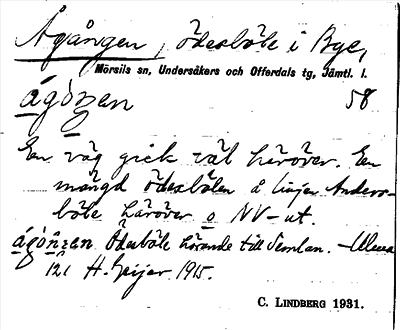 Ågången, ödesböle i Bye,
Mörsils sn, Undersåkers och Offerdals tg, Jämtl. l.
ágòŋen 58
En väg gick väl häröver. En
mängd ödesbölen å linjen Anders-
böle häröver o NV-ut.
ágòŋen Ödesböle hörande till Semlan.
H. Geijer 1915.
C. LINDBERG 1931.